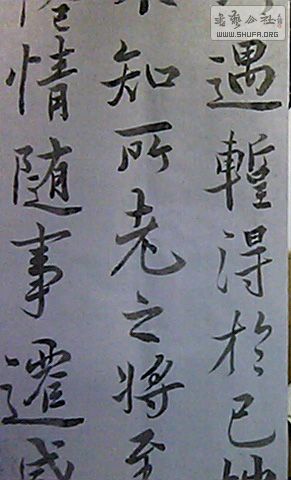 遇蹔得於己快
知所老之將至
惓情隨事遷感
書藝公社
WWW.SHUFA.ORG